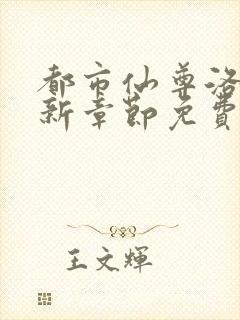 都市仙尊洛
新章節免費
王文輝